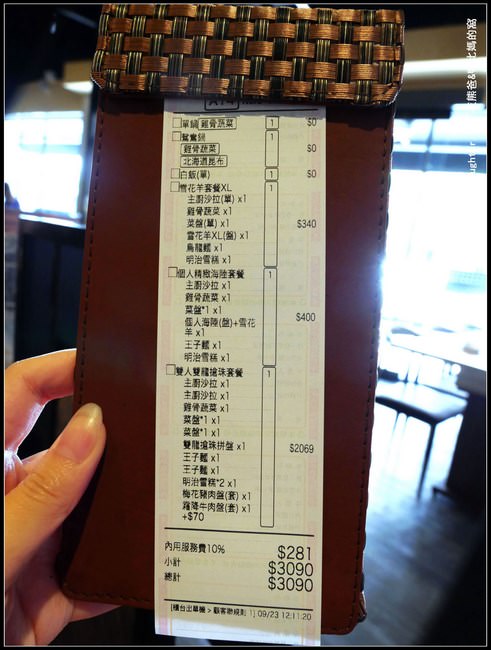 單鍋 雞骨蔬菜 1 $0
鴛鴦鍋 1
雞骨蔬菜 $0
北海道昆布
白飯(單) 1 $0
雪花羊套餐XL 1
主廚沙拉(單) x1
雞骨蔬菜 x1
菜盤(單) x1 $340
雪花羊XL(盤) x1
烏龍麵 x1
明治雪糕 x1
個人精緻海陸套餐 1
主廚沙拉 x1
雞骨蔬菜 x1
菜盤*1 x1
個人海陸(盤)+雪花 $400
羊 x1
王子麵 x1
明治雪糕 x1
雙人雙龍搶珠套餐 1
主廚沙拉 x1
主廚沙拉 x1
雞骨蔬菜 x1
菜盤*1 x1
菜盤*1 x1
雙龍搶珠拼盤 x1 $2069
王子麵 x1
王子麵 x1
明治雪糕*2 x1
梅花豬肉盤(套) x1
霜降牛肉盤(套) x1
+$70
內用服務費10% $281
小計 $3090
總計 $3090
[櫃台出單機 > 顧客聯規則 1] 09/23 12:11:20
熊爸&
媽的窩